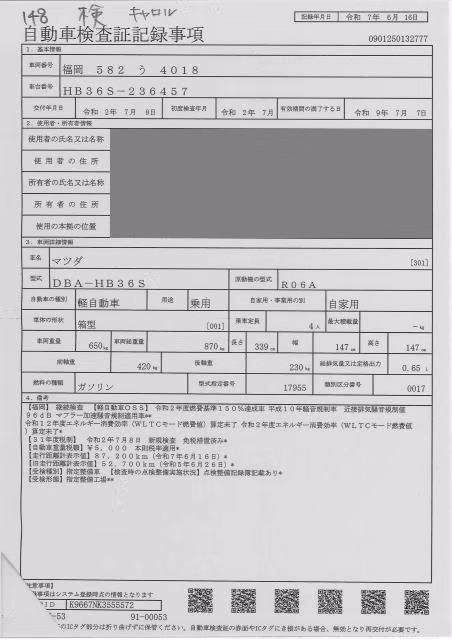 148 検 キャロル
記録年月日 令和 7年 6月 16日
自動車検査証記録事項 0901250132777
1．基本情報
車両番号 福岡 582 う 4018
車台番号 HB36S－236457
交付年月日 令和 2年 7月 8日 初度検査年月 令和 2年 7月 有効期間の満了する日 令和 9年 7月 7日
2．使用者・所有者情報
使用者の氏名又は名称
使用者の住所
所有者の氏名又は名称
所有者の住所
使用の本拠の位置
3．車両詳細情報
車名 マツダ [301]
型式 DBA－HB36S 原動機の型式 R06A
自動車の種別 軽自動車 用途 乗用 自家用・事業用の別 自家用
車体の形状 箱型 [001] 乗車定員 4人 最大積載量 －kg
車両重量 650kg 車両総重量 870kg 長さ 339cm 幅 147cm 高さ 147cm
前軸重 420kg 後軸重 230kg 総排気量又は定格出力 0.65 L
燃料の種類 ガソリン 型式指定番号 17955 類別区分番号 0017
4．備考
【福岡】 継続検査 【軽自動車OSS】 令和2年度燃費基準150％達成車 平成10年騒音規制車 近接排気騒音規制値
96dB マフラー加速騒音規制適用車**
令和12年度エネルギー消費効率（WLTCモード燃費値）算定未了 令和2年度エネルギー消費効率（WLTCモード燃費値
）算定未了*
【31年度税制】 令和2年7月8日 新規検査 免税措置済み*
【自動車重量税額】￥5,000 本則税率適用*
【走行距離計表示値】87,200km（令和7年6月16日）*
【旧走行距離計表示値】52,700km（令和5年6月26日）*
【受検種別】指定整備車 【検査時の点検整備実施状況】点検整備記録簿記載あり*
【受検形態】指定整備工場**
注意事項】
事項はシステム登録時点の情報となります
ID K9667NK3555572
-53 91-00053
のICタグ部分は折り曲げずに保管ください。自動車検査証の券面やICタグにき損がある場合、無効となり再交付が必要です。